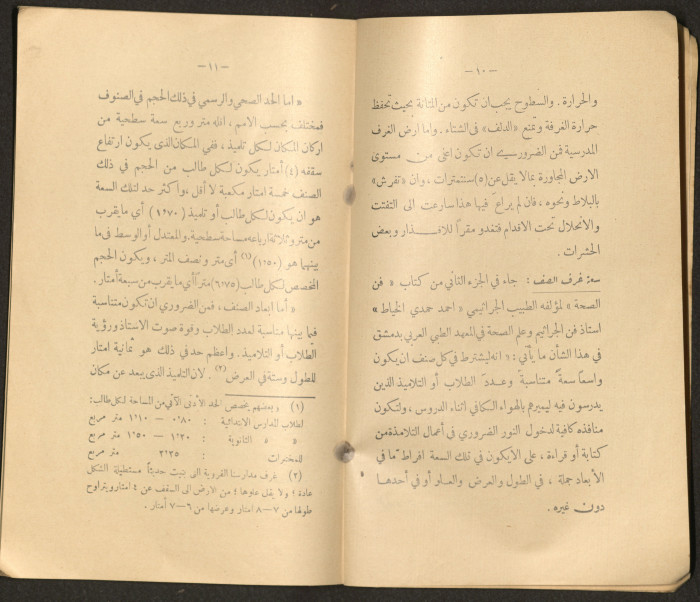 — ١٠ —
والحرارة . والسطوح يجب ان تكون من المتانة بحيث تحفظ
حرارة الغرفة وتمنع «الدلف» في الشتاء . واما ارض الغرف
المدرسية فمن الضروري ان تكون اعلى من مستوى
الارض المجاورة بما لا يقل عن (٥) سنتمترات ، وان «تفرش»
بالبلاط ونحوه ، فان لم يراع فيها هذا سارعت الى التفتت
والانحلال تحت الاقدام فتغدو مقراً للاقذار وبعض
الحشرات .
سعة غرف الصف : جاء في الجزء الثاني من كتاب « فن
الصحة » لمؤلفه الطبيب الجراثيمي « احمد حمدي الخياط »
استاذ فن الجراثيم وعلم الصحة في المعهد الطبي العربي بدمشق
في هذا الشأن ما يأتي : « انه ليشترط في كل صنف ان يكون
واسعاً سعةً متناسبةً وعدد الطلاب أو التلاميذ الذين
يدرسون فيه ليميرهم بالهواء الكافي اثناء الدروس ، ولتكون
منافذه كافية لدخول النور الضروري في أعمال التلامذة من
كتابة أو قراءة ، على الا يكون في تلك السعة افراط ما في
الأبعاد جملة ، في الطول والعرض والعلو أو في أحدها
دون غيره .
— ١١ —
« اما الحد الصحي والرسمي في ذلك الحجم في الصنوف
فمختلف بحسب الاسم ، اقله متر وربع سعة سطحية من
اركان المكان لكل تلميذ ، ففي المكان الذي يكون ارتفاع
سقفه (٤) أمتار يكون لكل طالب من الحجم في ذلك
الصنف خمسة امتار مكعبة لا أقل ، واكثر حد لتلك السعة
هو ان يكون لكل طالب أو تلميذ (١٬٦٧٠) أي ما يقرب
من متر وثلاثة ارباعه مساحة سطحية . والمعتدل أو الوسط في ما
بينهما هو (١٬٥٠) (١) أي متر ونصف المتر ، ويكون الحجم
المخصص لكل طالب (٦٬٧٥) متراً أي ما يقرب من سبعة أمتار .
« أما ابعاد الصنف ، فمن الضروري ان تكون متناسبة
فيما بينها مناسبة لعدد الطلاب وقوة صوت الاستاذ ورؤية
الطلاب أو التلاميذ . واعظم حد في ذلك هو ثمانية امتار
للطول وستة في العرض (٢) . لان التلميذ الذي يبعد عن مكان
(١) وبعضهم يخصص الحد الأدنى الآتي من المساحة لكل طالب :
لطلاب المدارس الابتدائية : ٠٬٨٠ — ١٬١٠ متر مربع
» » الثانوية : ١٬٣٠ — ١٬٥٠ متر مربع
للمختبرات : ٢٬٣٥ متر مربع
(٢) غرف مدارسنا القروية التي بنيت حديثاً مستطيلة الشكل
عادة ؛ ولا يقل علوها ؛ من الارض الى السقف عن ٤ امتار ويتراوح
طولها من ٧—٨ امتار وعرضها من ٦—٧ أمتار .